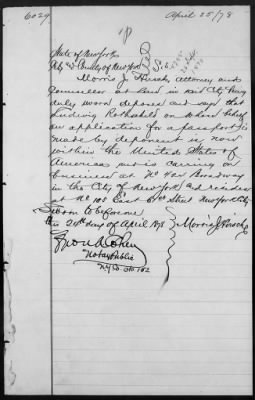 6029
April 25/78
State of New York
City and County of New York
Morris J. Hirsch, Attorney and
Counsellor at Law in said City being
duly sworn deposes and says that
Ludwig Rothschild on whose behalf
an application for a passport is
made by deponent is now
within the United States of
America and is carrying on
business at No 422 Broadway
in the City of New York and resides
at No 105 East Street New York City
Sworn to before me
this 24th day of April 1878
Morris J. Hirsch
Notary Public
N.Y. Co.